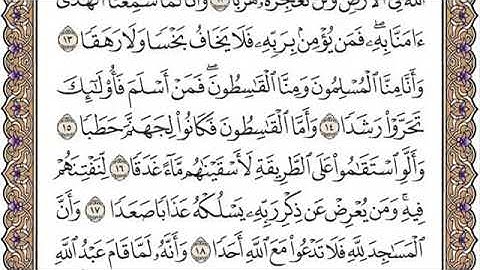 اللَّهَ فِي الْأَرْضِ وَلَن نُّعْجِزَهُ هَرَبًا ١٢ وَأَنَّا لَمَّا سَمِعْنَا الْهُدَىٰ
ءَامَنَّا بِهِۦ فَمَن يُؤْمِنۢ بِرَبِّهِۦ فَلَا يَخَافُ بَخْسًا وَلَا رَهَقًا ١٣
وَأَنَّا مِنَّا الْمُسْلِمُونَ وَمِنَّا الْقَاسِطُونَ فَمَنْ أَسْلَمَ فَأُو۟لَٰٓئِكَ
تَحَرَّوْا۟ رَشَدًا ١٤ وَأَمَّا الْقَاسِطُونَ فَكَانُوا۟ لِجَهَنَّمَ حَطَبًا ١٥
وَأَلَّوِ اسْتَقَٰمُوا۟ عَلَى الطَّرِيقَةِ لَأَسْقَيْنَٰهُم مَّآءً غَدَقًا ١٦ لِّنَفْتِنَهُمْ
فِيهِ وَمَن يُعْرِضْ عَن ذِكْرِ رَبِّهِۦ يَسْلُكْهُ عَذَابًا صَعَدًا ١٧ وَأَنَّ
الْمَسَٰجِدَ لِلَّهِ فَلَا تَدْعُوا۟ مَعَ اللَّهِ أَحَدًا ١٨ وَأَنَّهُۥ لَمَّا قَامَ عَبْدُ اللَّهِ